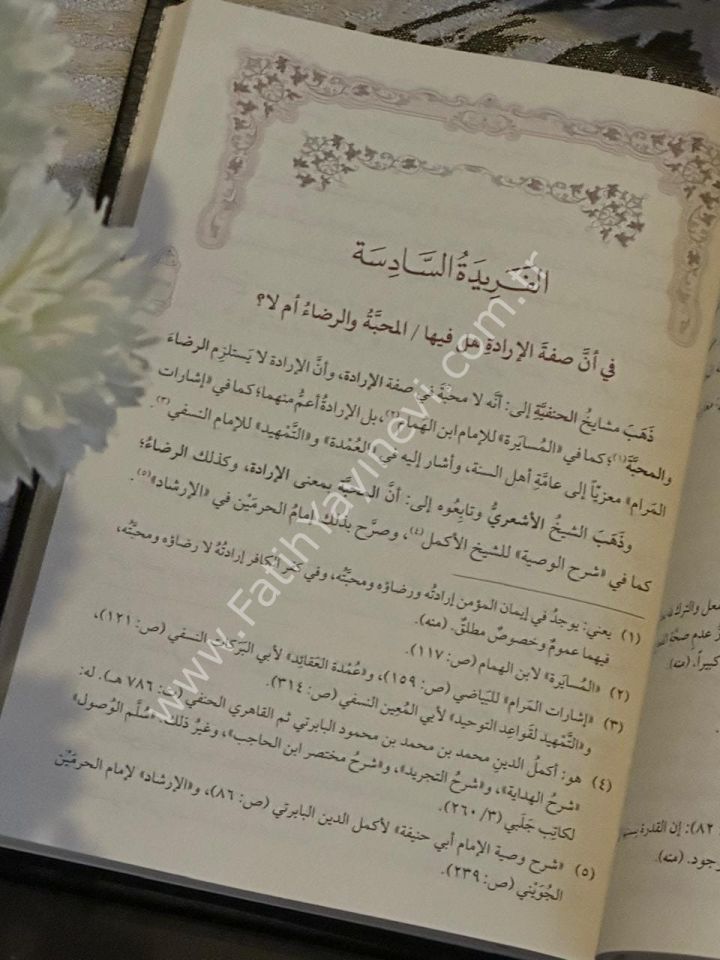 الفَرِيدَةُ السَّادِسَة
في أنَّ صفةَ الإرادةِ هل فيها / المحبَّةُ والرضاءُ أم لا؟
ذَهَبَ مشايخُ الحنفيَّةِ إلى: أنَّه لا محبَّةَ في صفة الإرادة، وأنَّ الإرادة لا يَستلزِم الرضاءَ
والمحبَّةَ(١)؛ كما في «المُسايَرة» للإمام ابن الهَمام(٢)، بل الإرادةُ أعمُّ منهما؛ كما في «إشارات
المَرام» معزيّاً إلى عامَّةِ أهل السنة، وأشار إليه في «العُمْدة» و«التَّمْهيد» للإمام النسفي(٣).
وذَهَبَ الشيخُ الأشعريُّ وتابِعُوه إلى: أنَّ المحبَّةَ بمعنى الإرادة، وكذلك الرضاءُ؛
كما في «شرح الوصية» للشيخ الأكمل(٤)، وصرَّح بذلك إمامُ الحرمَيْن في «الإرشاد»(٥).
(١) يعني: يوجدُ في إيمان المؤمن إرادتُه ورضاؤه ومحبَّتُه، وفي كفر الكافر إرادتُهُ لا رضاؤه ومحبَّتُه،
فيهما عمومٌ وخصوصٌ مطلقٌ. (منه).
(٢) «المُسايَرة» لابن الهمام (ص: ١١٧).
(٣) «إشارات المَرام» للبَياضي (ص: ١٥٩)، و«عُمْدة العَقائد» لأبي البَركات النسفي (ص: ١٢١)،
و«التَّمْهيدَ لقَواعِد التوحيد» لأبي المُعِين النسفي (ص: ٣١٤).
(٤) هو: أكملُ الدينِ محمد بن محمد بن محمود البابرتي ثم القاهري الحنفي (ت: ٧٨٦ هـ). له:
«شرحُ الهداية»، و«شرحُ التجريد»، و«شرحُ مختصر ابن الحاجب»، وغيرُ ذلك. «سُلَّم الوُصول»
لكاتِب جَلَبي (٣/ ٢٦٠).
(٥) «شرح وصية الإمام أبي حنيفة» لأكمل الدين البابرتي (ص: ٨٦)، و«الإرشاد» لإمام الحرمَيْن
الجُوَيْني (ص: ٢٣٩).
www.FatihYayinevi.com.tr
كبيراً. (منه).
٨٢): إن القدرة
(منه).